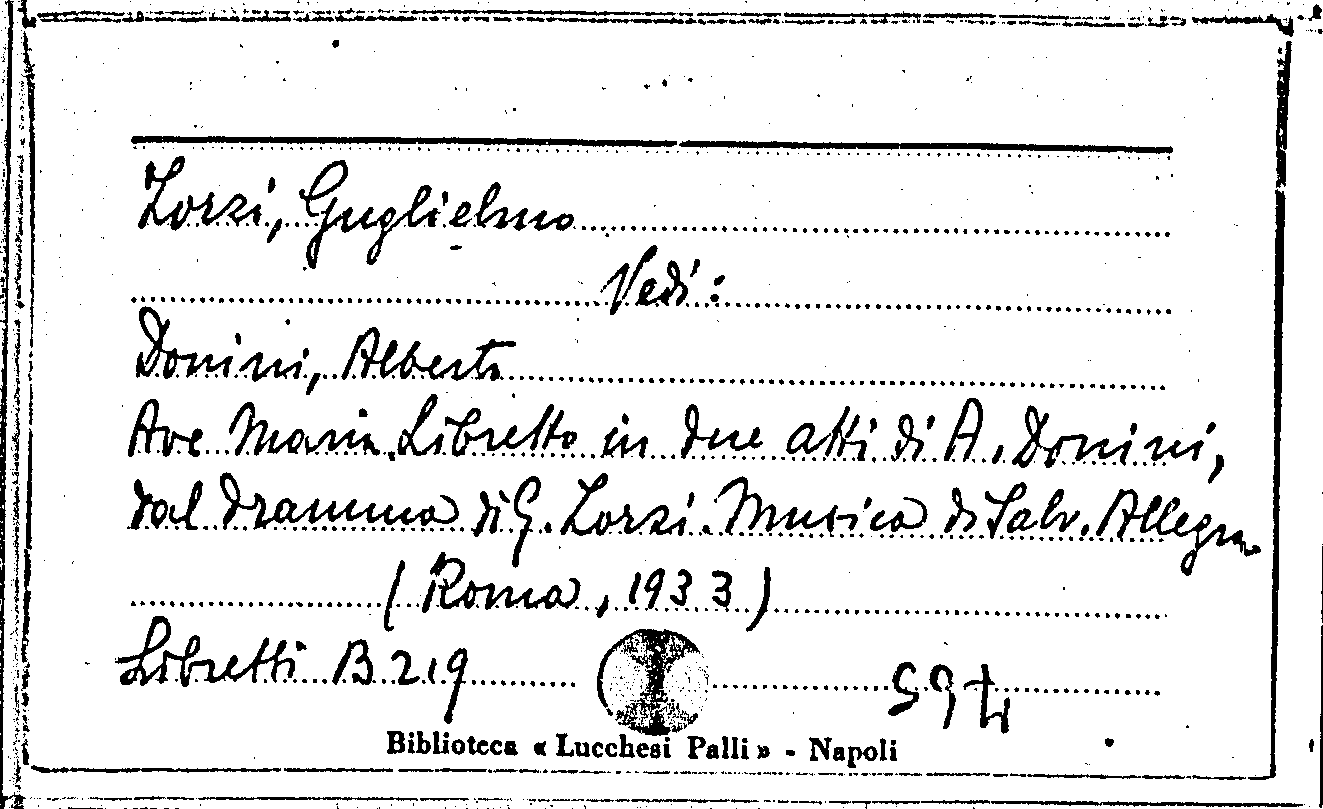 Zorzi, Guglielmo
Vedi:
Donini, Alberto
Ave Maria. Libretto in due atti di A. Donini,
dal dramma di G. Zorzi. Musica di Salv. Allegra
(Roma, 1933)
Libretti B 219
Biblioteca « Lucchesi Palli » - Napoli